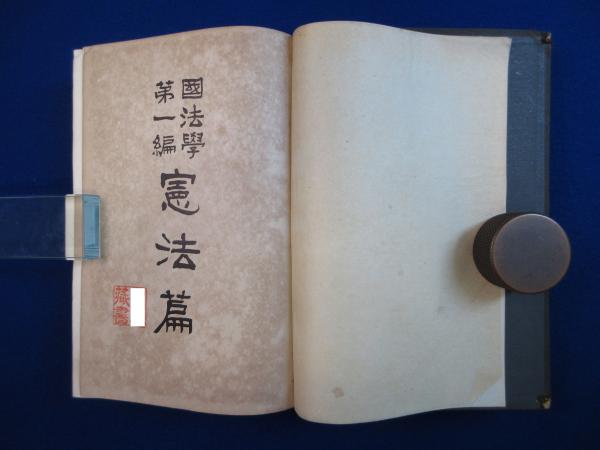 國法學
第一編
憲法篇
藏書